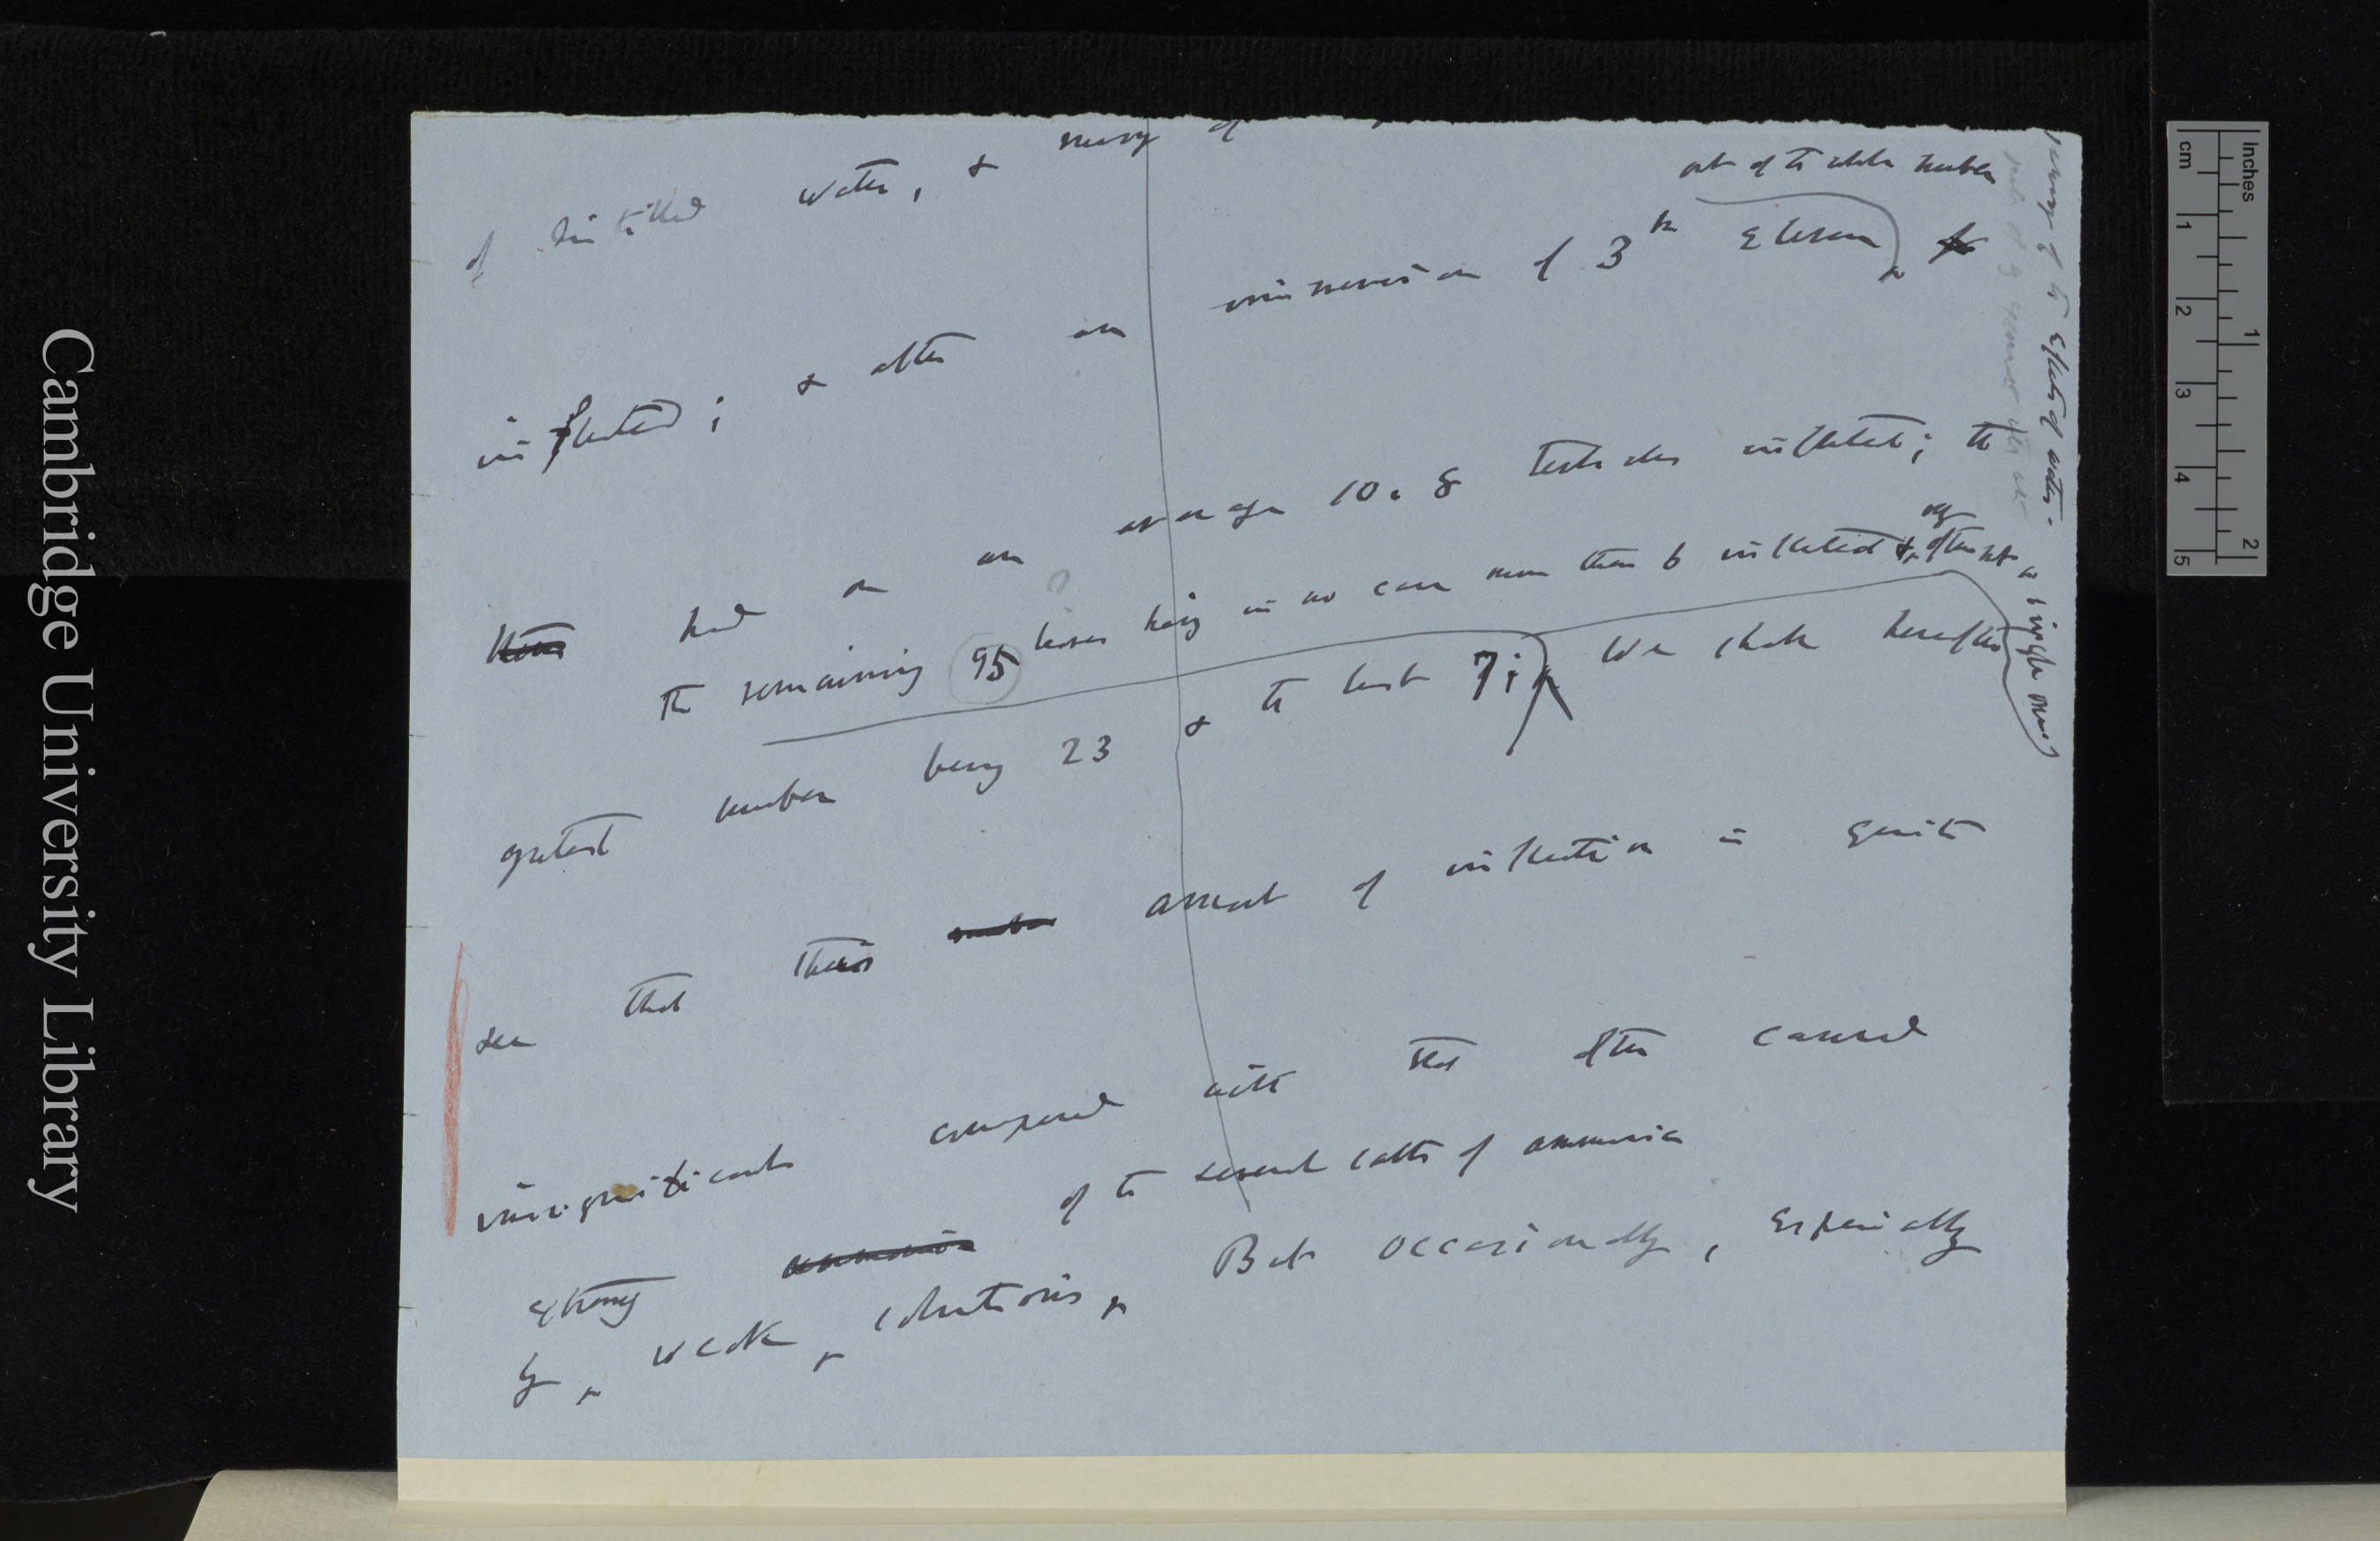 of distilled water, & many of
out of the whole number
inflected; & after an immersion of 3h Eleven
had on an average 10.8 tentacles inflected; the
The remaining 95 leaves having in no case more than 6 inflected & often not a single one
greatest number being 23 & the least 7; We shall hereafter
see that this number amount of inflection is quite
insignificant compared with that often caused
strong ammonia of the several salts of ammonia
by weak solutions. But occasionally, especially
effects of water.
Cambridge University Library
cm 1 2 3 4 5
Inches 1 2